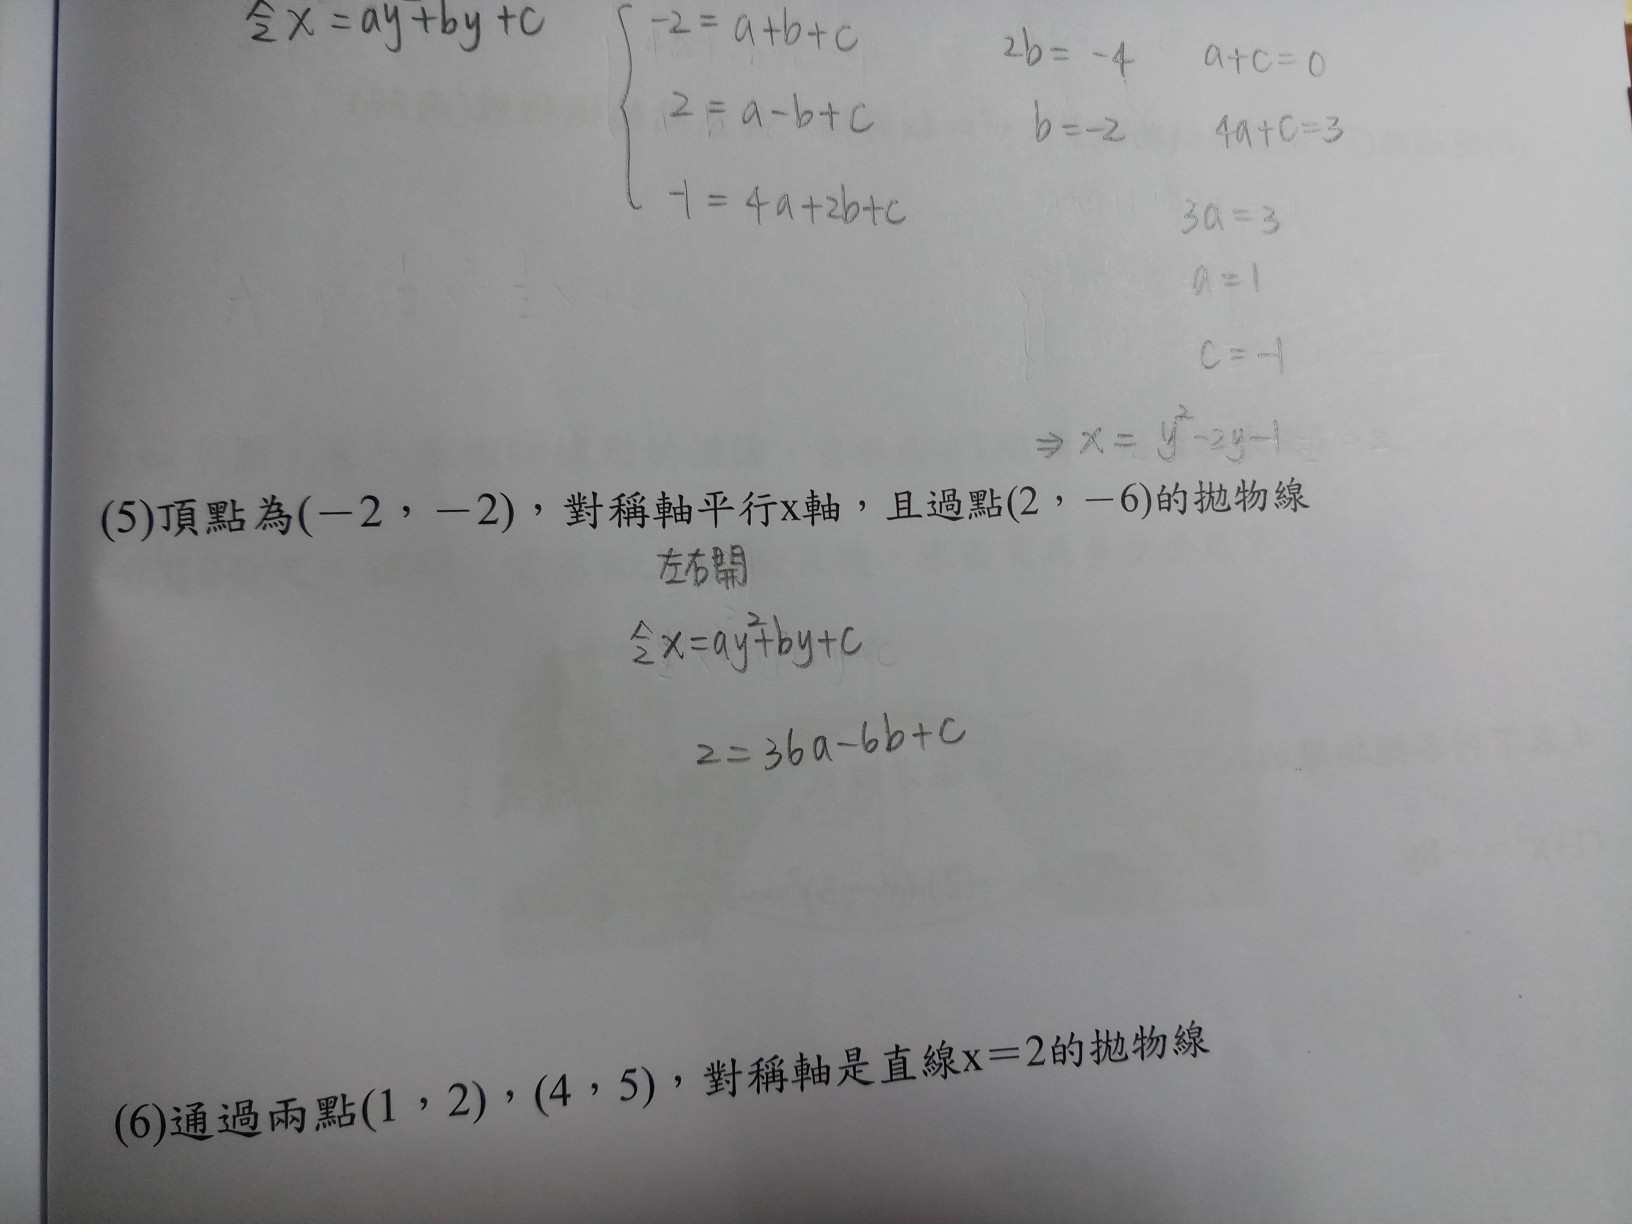 令x=ay²+by+c
-2=a+b+c
2=a-b+c
-1=4a+2b+c
2b=-4
b=-2
a+c=0
4a+c=3
3a=3
a=1
c=-1
⇒x=y²-2y-1
(5)頂點為(－2，－2)，對稱軸平行x軸，且過點(2，－6)的拋物線
左右開
令x=ay²+by+c
2=36a-6b+c
(6)通過兩點(1，2)，(4，5)，對稱軸是直線x＝2的拋物線